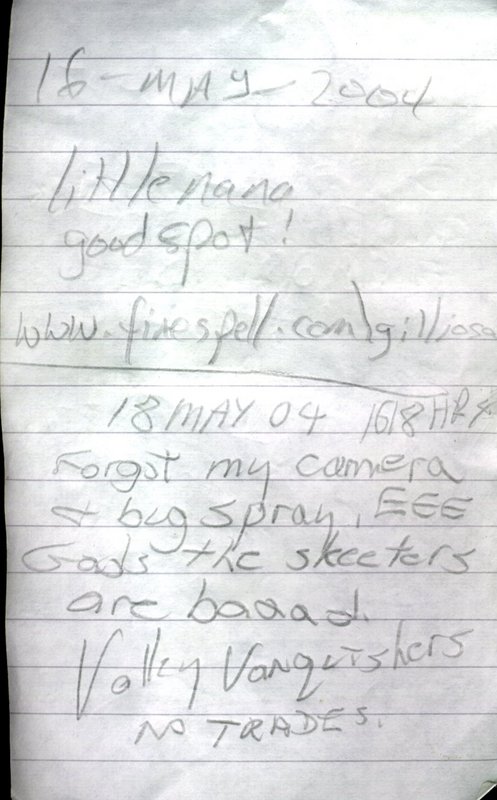 16-MAY-2004
little nana
good spot!
www.firespell.com\gilliosa
18 MAY 04 1618 HRS
Forgot my camera
& bug spray, EEE
Gads the skeeters
are baaad.
Valley Vanquishers
NO TRADES.